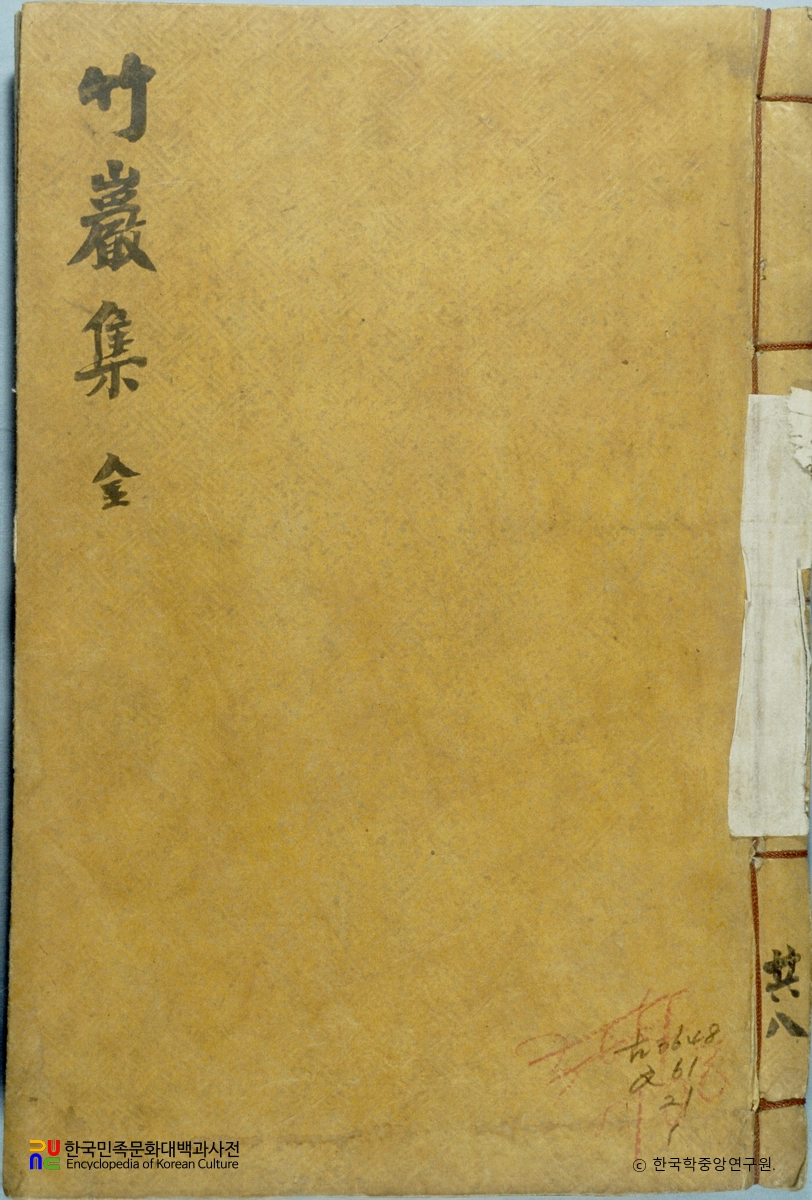 竹巖集 全
古3648
文61
21
1
한국민족문화대백과사전
Encyclopedia of Korean Culture
ⓒ 한국학중앙연구원.